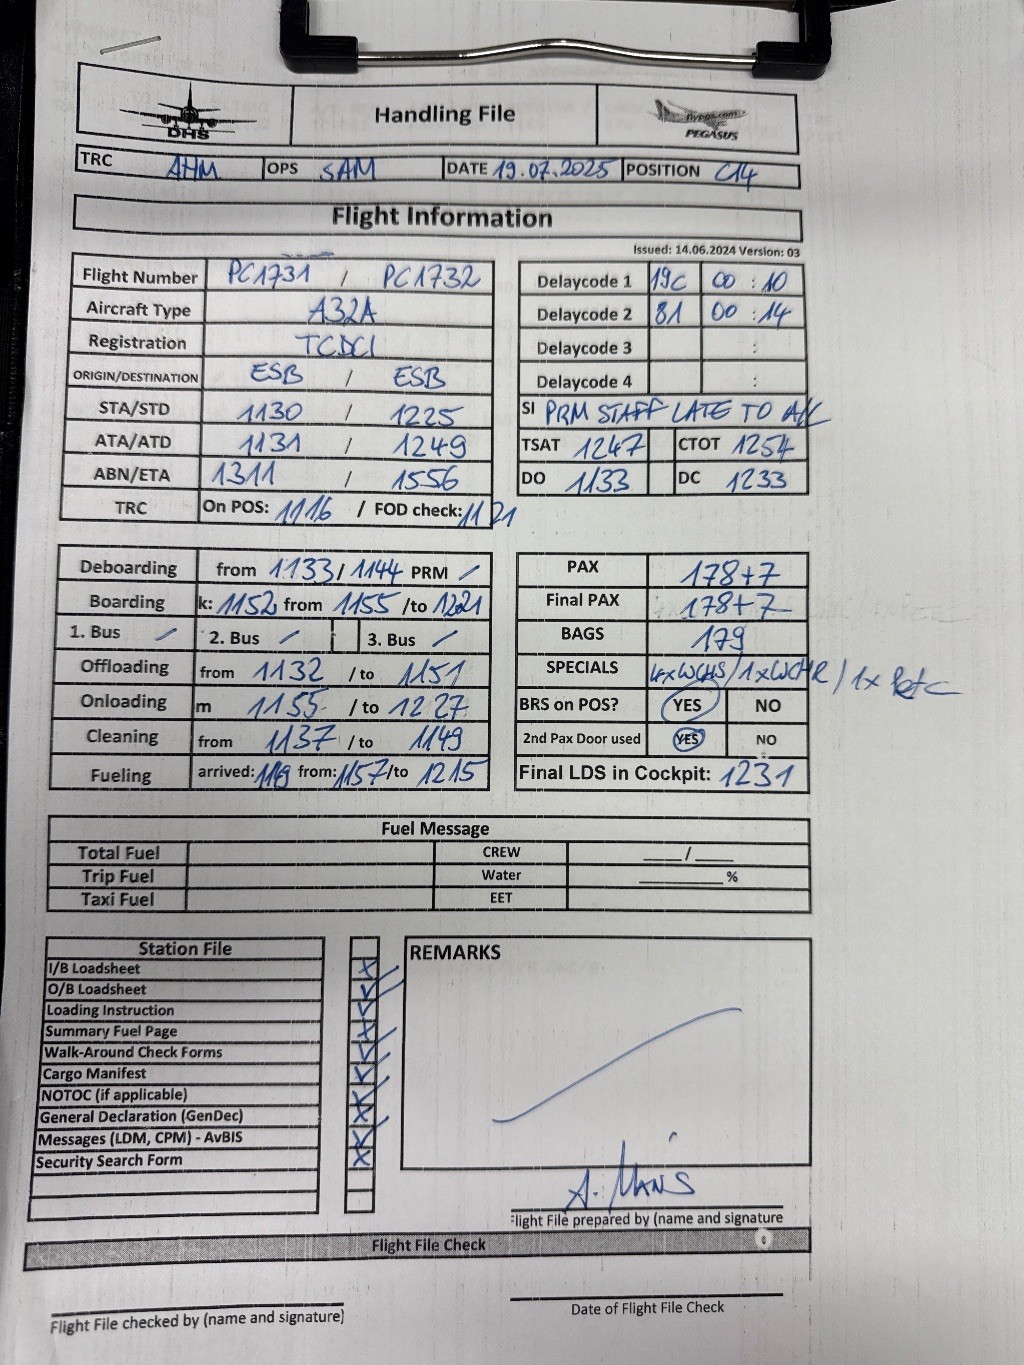 DHS
Handling File
flypgs.com
PEGASUS
TRC AHM OPS SAM DATE 19.07.2025 POSITION C14
Flight Information
Issued: 14.06.2024 Version: 03
Flight Number PC1731 / PC1732
Aircraft Type A32A
Registration TCDCI
ORIGIN/DESTINATION ESB / ESB
STA/STD 1130 / 1225
ATA/ATD 1131 / 1249
ABN/ETA 1311 / 1556
TRC On POS: 1116 / FOD check: 1121
Delaycode 1 19C 00 : 10
Delaycode 2 81 00 : 14
Delaycode 3 :
Delaycode 4 :
SI PRM STAFF LATE TO A/C
TSAT 1247 CTOT 1254
DO 1133 DC 1233
Deboarding from 1133 / 1144 PRM /
Boarding k: 1152 from 1155 /to 1221
1. Bus / 2. Bus / 3. Bus /
Offloading from 1132 / to 1151
Onloading m 1155 / to 1227
Cleaning from 1137 / to 1149
Fueling arrived: 1149 from: 1157 /to 1215
PAX 178+7
Final PAX 178+7
BAGS 179
SPECIALS 4xWCHS / 1xWCHR / 1x
BRS on POS? YES NO
2nd Pax Door used YES NO
Final LDS in Cockpit: 1231
Fuel Message
Total Fuel CREW ___/___
Trip Fuel Water ________%
Taxi Fuel EET
Station File
I/B Loadsheet
O/B Loadsheet
Loading Instruction
Summary Fuel Page
Walk-Around Check Forms
Cargo Manifest
NOTOC (if applicable)
General Declaration (GenDec)
Messages (LDM, CPM) - AvBIS
Security Search Form
REMARKS
A. MANS
Flight File prepared by (name and signature
Flight File Check
Flight File checked by (name and signature)
Date of Flight File Check